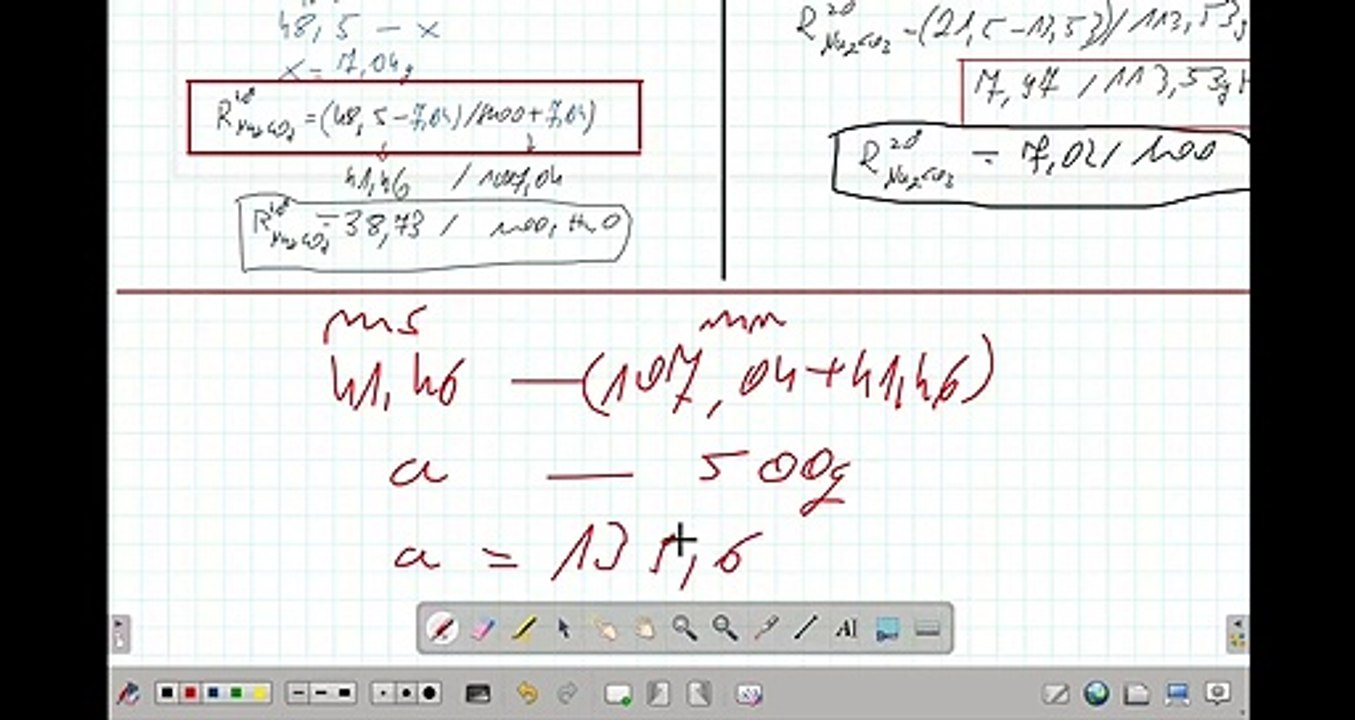 48,5 — x
x = 7,04g
R¹⁸ Na₂CO₃ = (48,5-7,04)/100+7,04)
41,46 / 107,04
R¹⁸ Na₂CO₃ = 38,73 / 100, H₂O
R²⁰ Na₂CO₃ -(21,5-13,53)/113,53g
7,97 / 113,53g H
R²⁰ Na₂CO₃ = 7,02/ 100
ms mr
41,46 — (107,04+41,46)
a — 500g
a = 139,6
AI